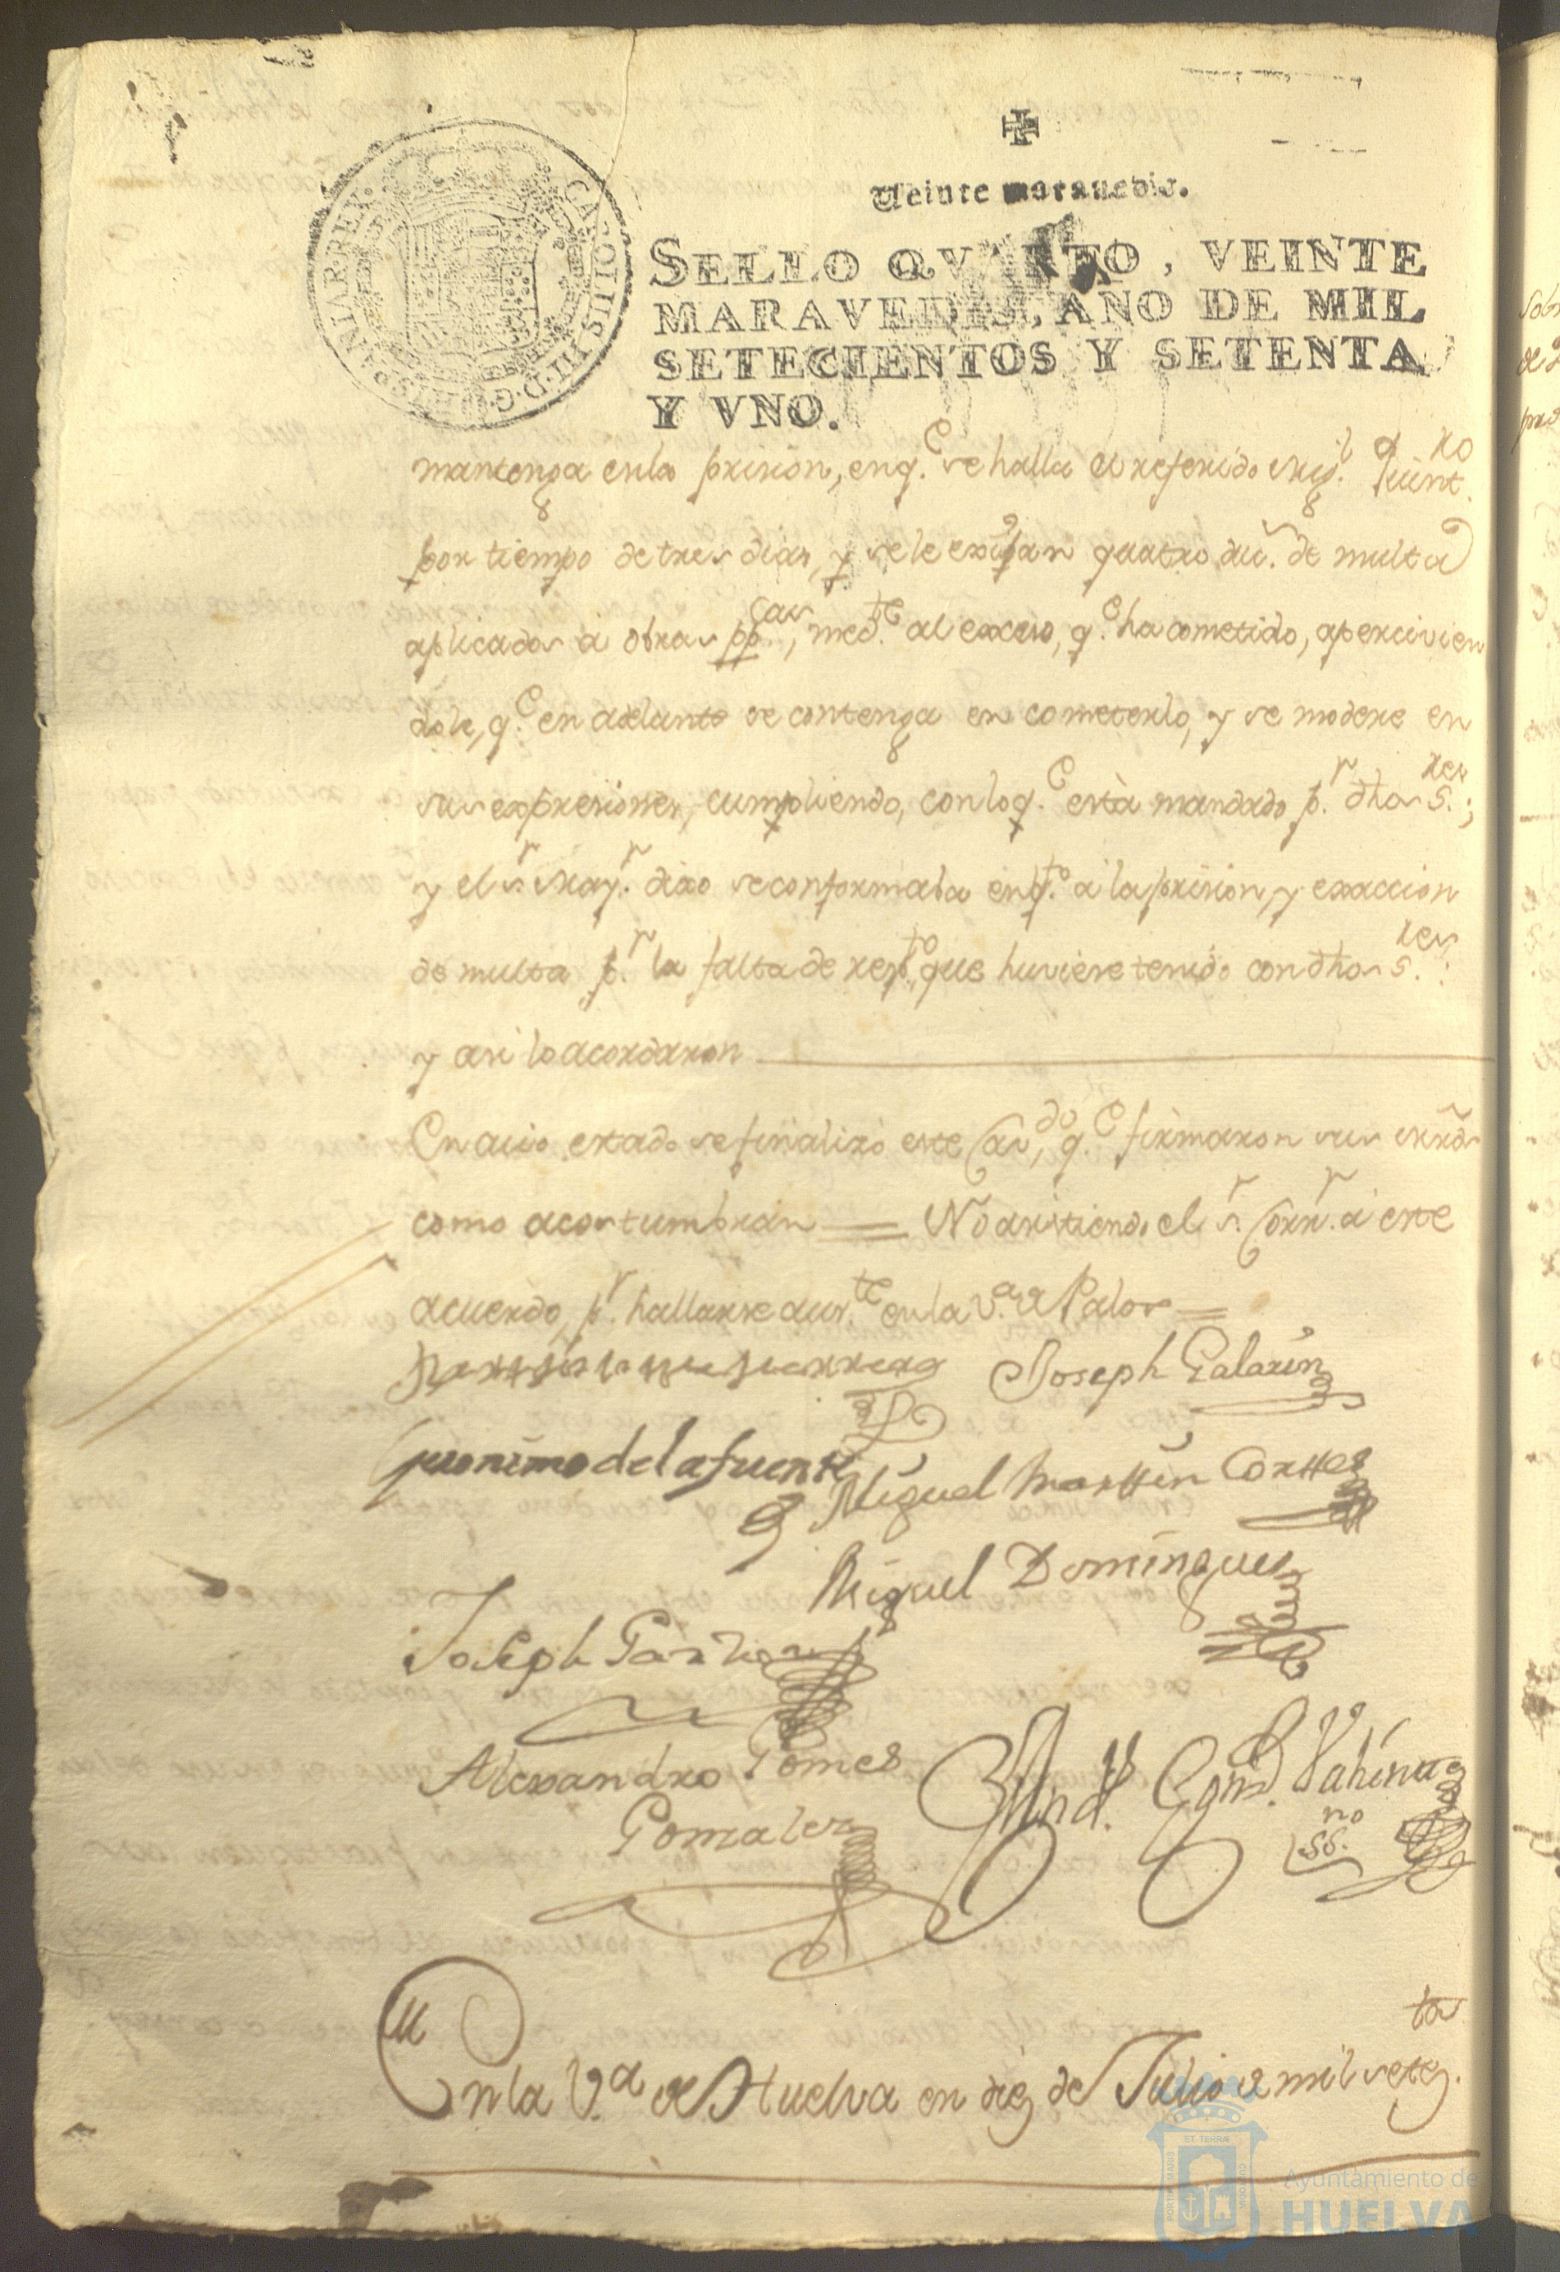 Veinte maravedis.
CAROLUS III D. G. HISPANIAR. REX
SELLO QVARTO, VEINTE
MARAVEDIS, AÑO DE MIL
SETECIENTOS Y SETENTA
Y VNO.
mantenga en la prision, en q.e se halla el referido
por tiempo de tres dias, y se le exijan quatro du.s de multa
aplicados â obras pp.cas, med.te al exceso, q.e ha cometido, apercivien
dole, q.e en adelante se contenga en cometerlo, y se modere en
sus expresiones, cumpliendo, con lo q.e està mandado p.r dhos S.res;
y el s.r May.r dixo se conformaba en q.to a la prision, y exaccion
de multa p.r la falta de resp.to que huviese tenido con dhos S.res:
y asi lo acordaron
En cuio estado se finalizò este Cav.do, q.e firmaron sus mrds
como acostumbran = No asistiendo el s.r Corr.r a este
acuerdo, p.r hallarse aus.te en la V.a de Palos =
Joseph Galavin
Geronimo de la fuente
Miguel Martin Corttes
Miguel Domingues
Joseph
Alexandro Gomes
Gonzalez
SS.no
En la V.a de Huelva en diez de Julio de mil setez.tos
ET TERRÆ
PORTUS MARIS
CUSTODIA
Ayuntamiento de
HUELVA